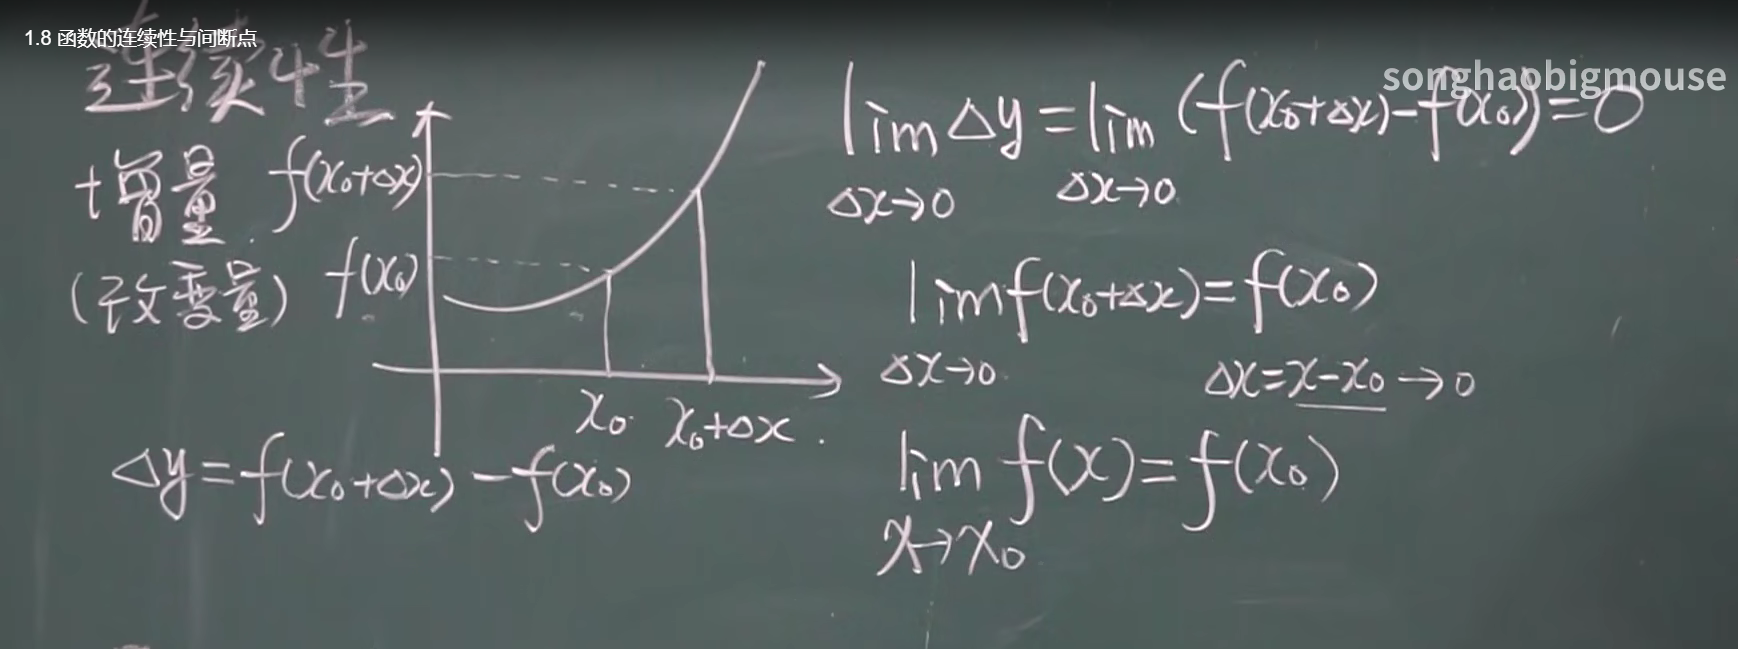 1.8 函数的连续性与间断点
songhaobigmouse
连续性
增量
(改变量)
f(x₀+Δx)
f(x₀)
x₀
x₀+Δx
Δy=f(x₀+Δx)-f(x₀)
lim Δy=lim (f(x₀+Δx)-f(x₀))=0
Δx→0 Δx→0
lim f(x₀+Δx)=f(x₀)
Δx→0 Δx=x-x₀→0
lim f(x)=f(x₀)
x→x₀